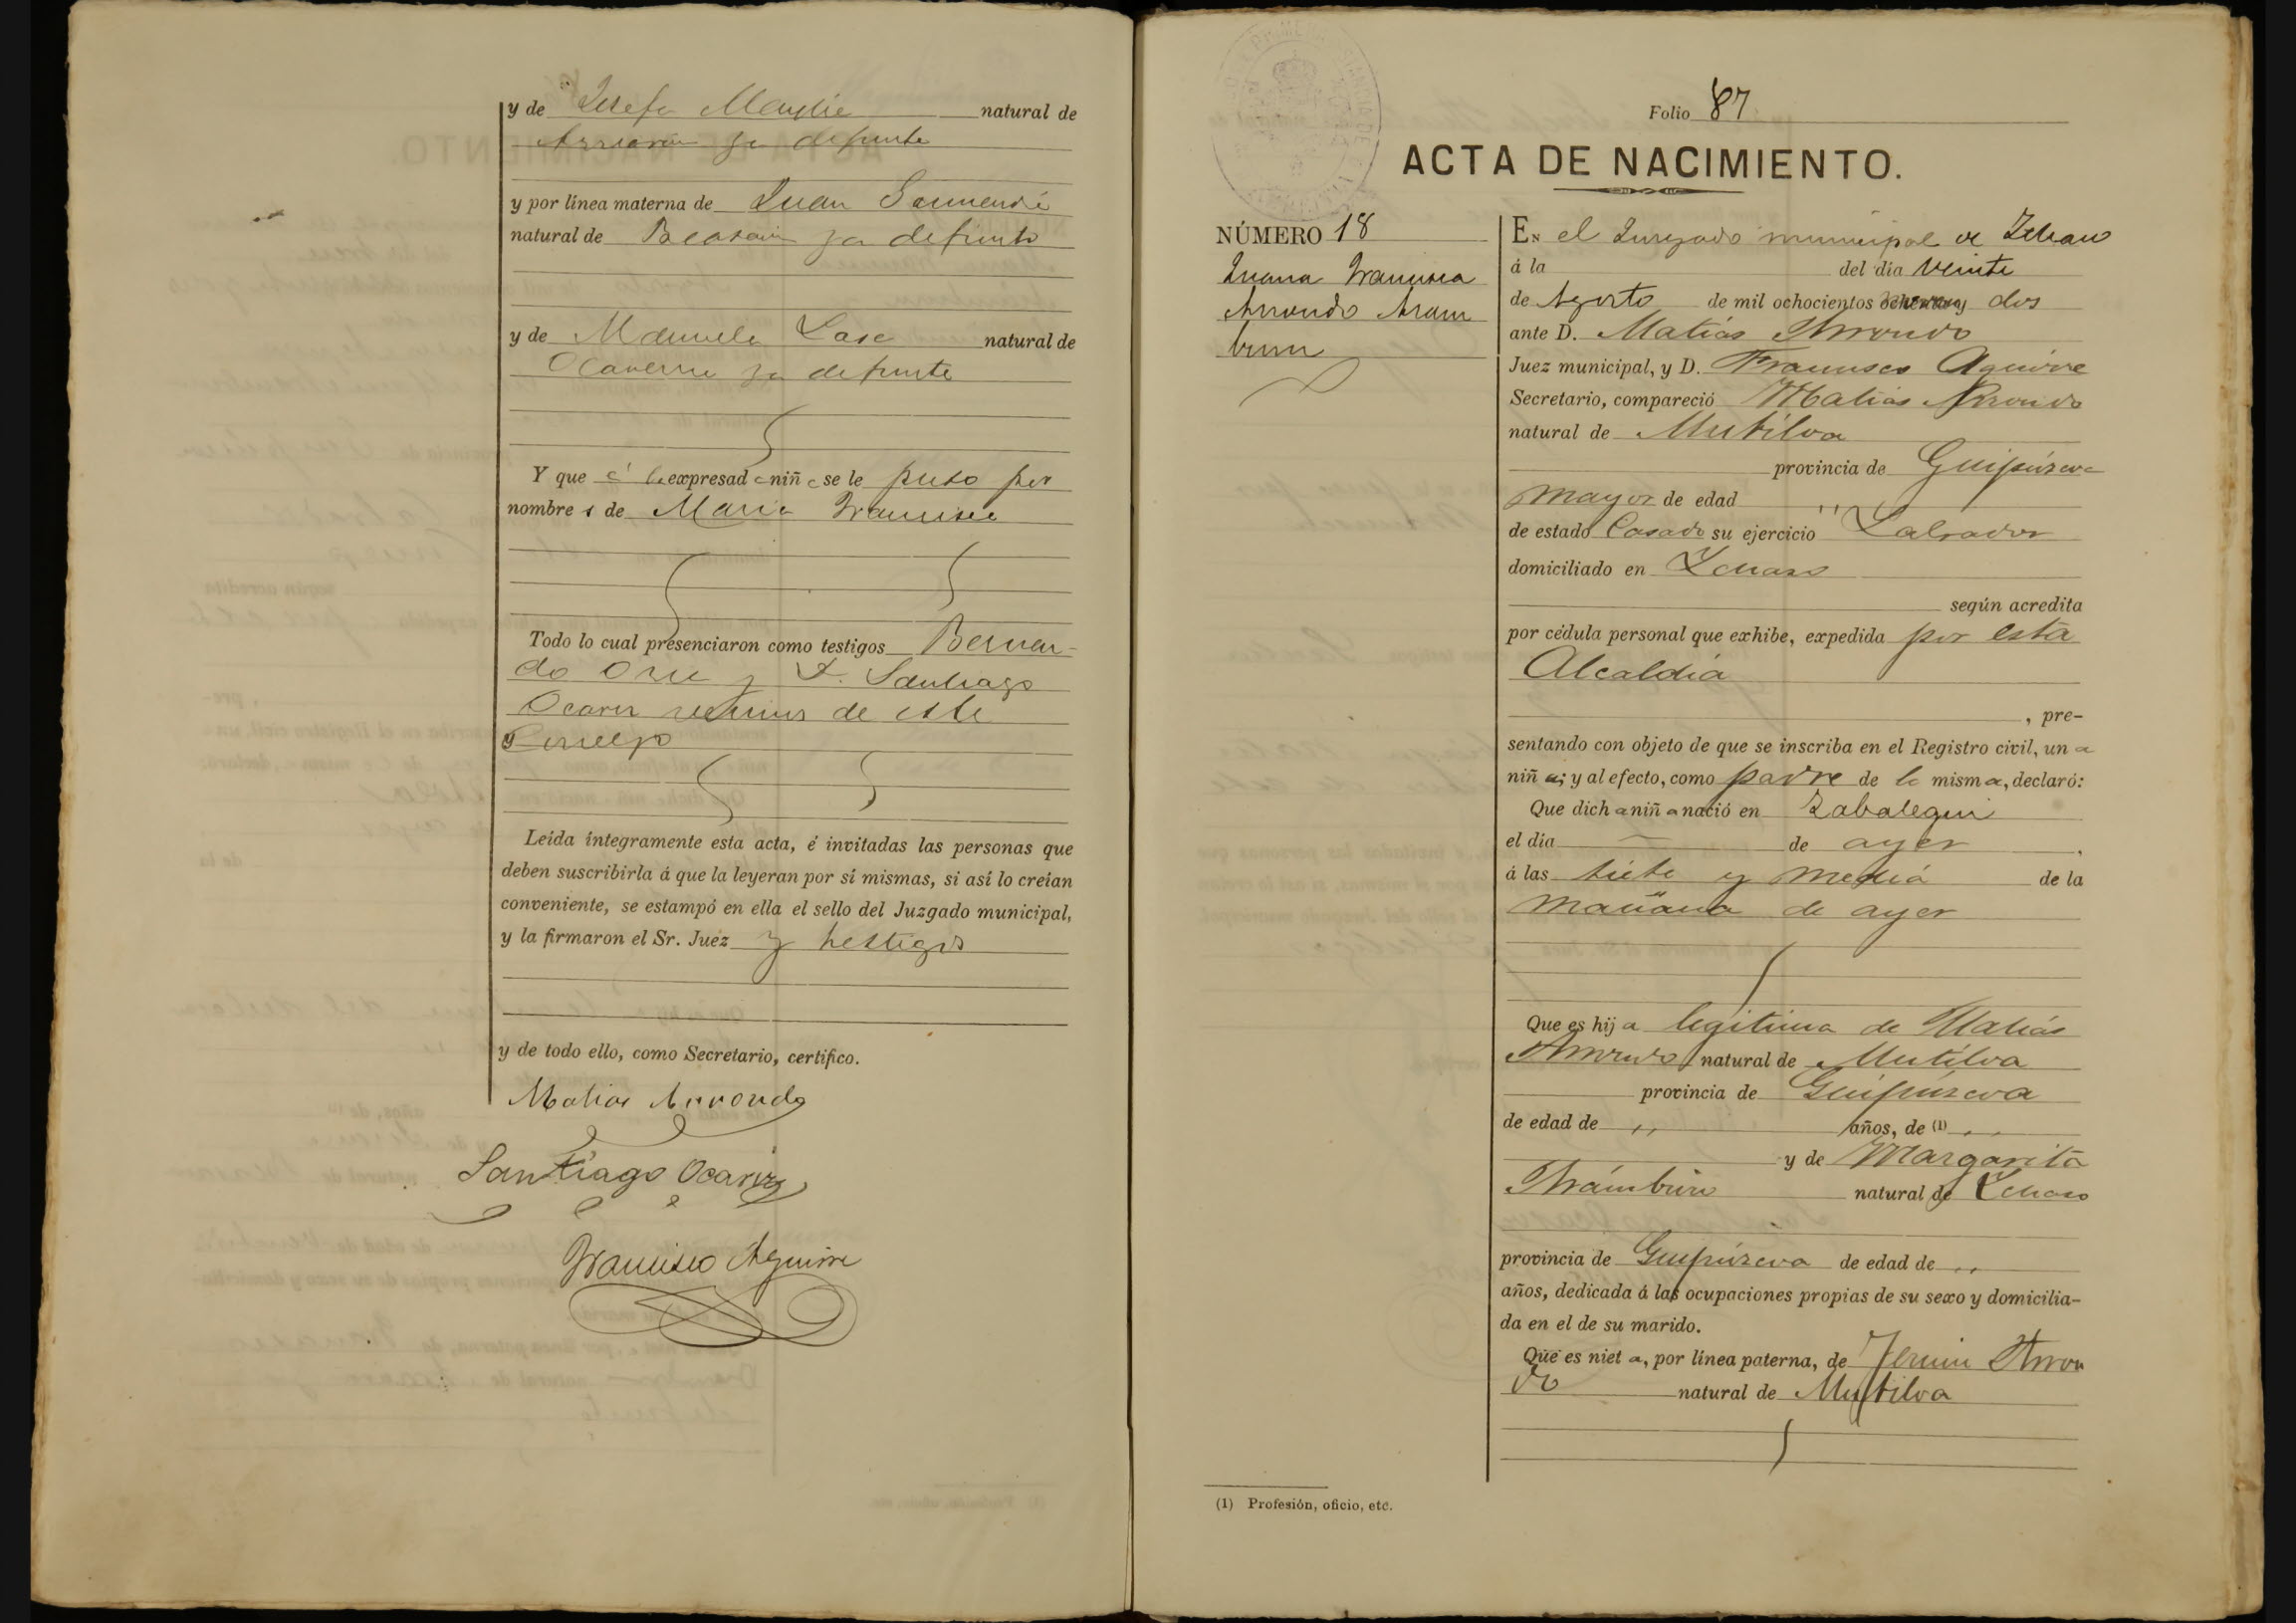 y de Josefa Mendie natural de
Arriaran ya difunta
y por línea materna de Juan
natural de Beasain ya difunto
y de Manuela Lasa natural de
ya difunta
Y que á la expresada niña se le puso por
nombres de Maria Francisca
Todo lo cual presenciaron como testigos Bernar-
do y D. Santiago
Ocariz vecinos de este
Concejo
Leída íntegramente esta acta, é invitadas las personas que
deben suscribirla á que la leyeran por sí mismas, si así lo creían
conveniente, se estampó en ella el sello del Juzgado municipal,
y la firmaron el Sr. Juez y testigos
y de todo ello, como Secretario, certifico.
Matias Arrondo
Santiago Ocariz
Francisco Aguirre
Folio 87
ACTA DE NACIMIENTO.
NÚMERO 18
Juana Francisca
Arrondo Aram
buru
En el Juzgado municipal de Ichaso
á la del día veinte
de Agosto de mil ochocientos noventa y dos
ante D. Matias Arrondo
Juez municipal, y D. Francisco Aguirre
Secretario, compareció Matias Arrondo
natural de Mutilva
provincia de Guipúzcoa
mayor de edad ,,
de estado Casado su ejercicio Labrador
domiciliado en Ichaso
según acredita
por cédula personal que exhibe, expedida por esta
Alcaldia
, pre-
sentando con objeto de que se inscriba en el Registro civil, una
niña; y al efecto, como padre de la misma, declaró:
Que dicha niña nació en Zabalegui
el día — de ayer
á las siete y media de la
mañana de ayer
Que es hija legitima de Matias
Arrondo natural de Mutilva
provincia de Guipúzcoa
de edad de ,, años, de (1) ,,
y de Margarita
Arámburu natural de Ichaso
provincia de Guipúzcoa de edad de ,,
años, dedicada á las ocupaciones propias de su sexo y domicilia-
da en el de su marido.
Que es nieta, por línea paterna, de Fermin Arron
do natural de Mutilva
(1) Profesión, oficio, etc.